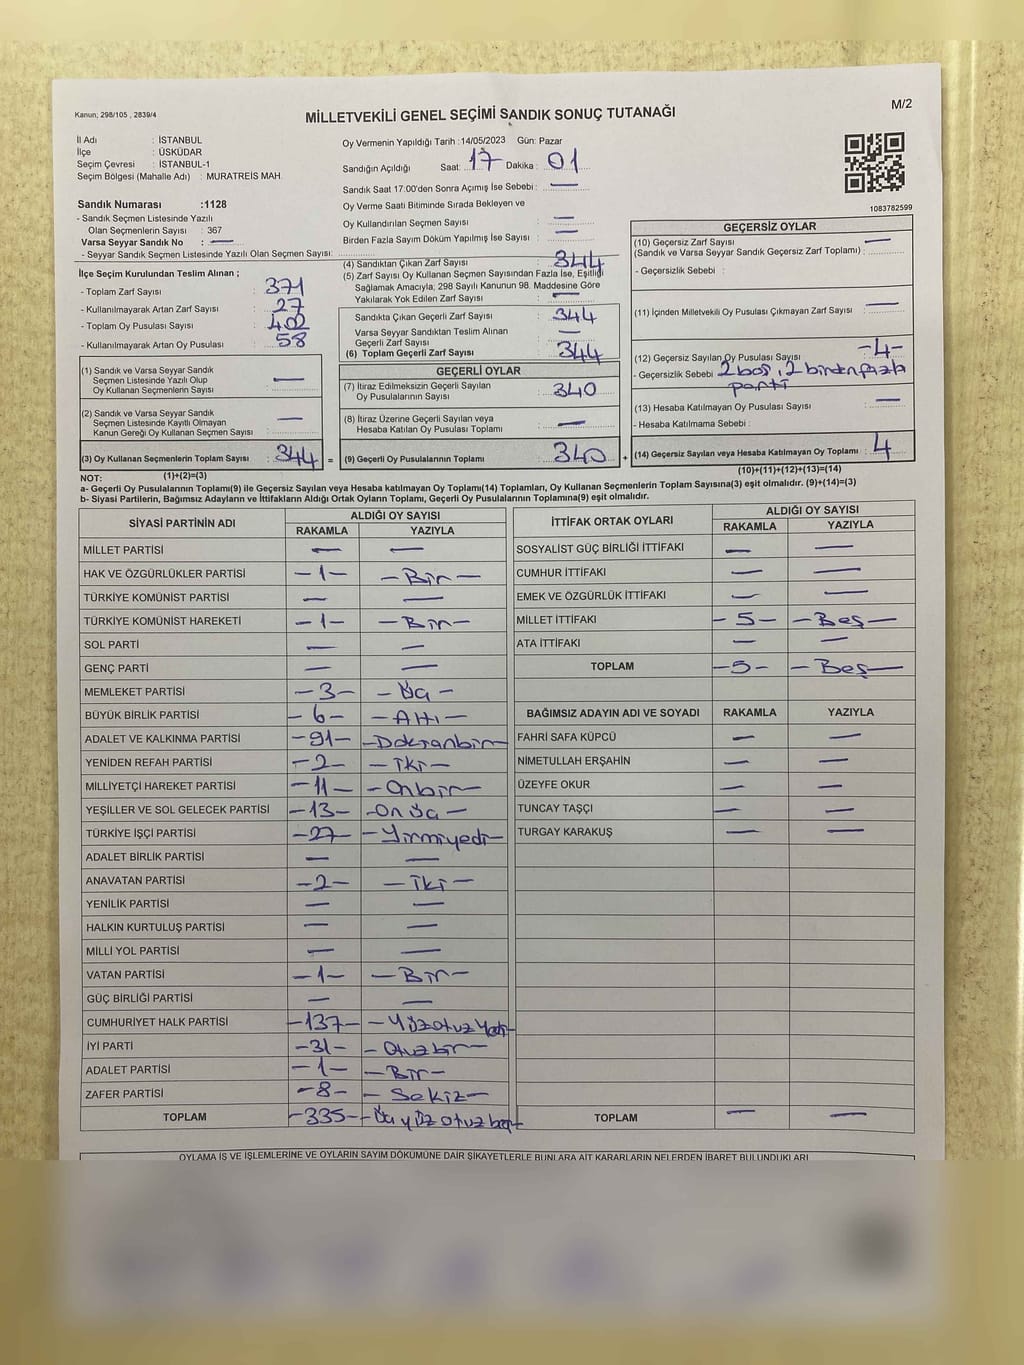 Kanun; 298/105 , 2839/4
MİLLETVEKİLİ GENEL SEÇİMİ SANDIK SONUÇ TUTANAĞI
M/2
İl Adı : İSTANBUL
İlçe : ÜSKÜDAR
Seçim Çevresi : İSTANBUL-1
Seçim Bölgesi (Mahalle Adı) : MURATREİS MAH.
Oy Vermenin Yapıldığı Tarih :14/05/2023 Gün: Pazar
Sandığın Açıldığı Saat: 17 Dakika : 01
Sandık Saat 17:00'den Sonra Açımış İse Sebebi : —
Oy Verme Saati Bitiminde Sırada Bekleyen ve
Oy Kullandırılan Seçmen Sayısı —
Birden Fazla Sayım Döküm Yapılmış İse Sayısı : —
1083782599
Sandık Numarası :1128
- Sandık Seçmen Listesinde Yazılı
Olan Seçmenlerin Sayısı : 367
Varsa Seyyar Sandık No : —
- Seyyar Seçmen Listesinde Yazılı Olan Seçmen Sayısı:
İlçe Seçim Kurulundan Teslim Alınan ;
- Toplam Zarf Sayısı : 371
- Kullanılmayarak Artan Zarf Sayısı : 27
- Toplam Oy Pusulası Sayısı : 402
- Kullanılmayarak Artan Oy Pusulası : 58
(1) Sandık ve Varsa Seyyar Sandık
Seçmen Listesinde Yazılı Olup
Oy Kullanan Seçmenlerin Sayısı : —
(2) Sandık ve Varsa Seyyar Sandık
Seçmen Listesinde Kayıtlı Olmayan
Kanun Gereği Oy Kullanan Seçmen Sayısı : —
(3) Oy Kullanan Seçmenlerin Toplam Sayısı : 344 =
(4) Sandıktan Çıkan Zarf Sayısı : 344
(5) Zarf Sayısı Oy Kullanan Seçmen Sayısından Fazla İse, Eşitliği
Sağlamak Amacıyla; 298 Sayılı Kanunun 98. Maddesine Göre
Yakılarak Yok Edilen Zarf Sayısı : —
Sandıkta Çıkan Geçerli Zarf Sayısı : 344
Varsa Seyyar Sandıktan Teslim Alınan
Geçerli Zarf Sayısı : —
(6) Toplam Geçerli Zarf Sayısı : 344
GEÇERLİ OYLAR
(7) İtiraz Edilmeksizin Geçerli Sayılan
Oy Pusulalarının Sayısı : 340
(8) İtiraz Üzerine Geçerli Sayılan veya
Hesaba Katılan Oy Pusulası Toplamı : —
(9) Geçerli Oy Pusulalarının Toplamı : 340 +
GEÇERSİZ OYLAR
(10) Geçersiz Zarf Sayısı —
(Sandık ve Varsa Seyyar Sandık Geçersiz Zarf Toplamı) :
- Geçersizlik Sebebi :
(11) İçinden Milletvekili Oy Pusulası Çıkmayan Zarf Sayısı : —
(12) Geçersiz Sayılan Oy Pusulası Sayısı : -4-
- Geçersizlik Sebebi : 2 boş, 2 birden fazla
parti
(13) Hesaba Katılmayan Oy Pusulası Sayısı : —
- Hesaba Katılmama Sebebi :
(14) Geçersiz Sayılan veya Hesaba Katılmayan Oy Toplamı : 4
NOT: (1)+(2)=(3) (10)+(11)+(12)+(13)=(14)
a- Geçerli Oy Pusulaları Toplamı(9) ile Geçersiz Sayılan veya Hesaba katılmayan Oy Toplamı(14) Toplamları, Oy Kullanan Seçmenlerin Toplam Sayısına(3) eşit olmalıdır. (9)+(14)=(3)
b- Siyasi Partilerin, Bağımsız Adayların ve İttifakların Aldığı Ortak Oyların Toplamı, Geçerli Oy Pusulalarının Toplamına(9) eşit olmalıdır.
SİYASİ PARTİNİN ADI ALDIĞI OY SAYISI
RAKAMLA YAZIYLA
MİLLET PARTİSİ — —
HAK VE ÖZGÜRLÜKLER PARTİSİ -1- -Bir-
TÜRKİYE KOMÜNİST PARTİSİ — —
TÜRKİYE KOMÜNİST HAREKETİ -1- -Bir-
SOL PARTİ — —
GENÇ PARTİ — —
MEMLEKET PARTİSİ -3- -Üç-
BÜYÜK BİRLİK PARTİSİ -6- -Altı-
ADALET VE KALKINMA PARTİSİ -91- -Doksanbir
YENİDEN REFAH PARTİSİ -2- -iki-
MİLLİYETÇİ HAREKET PARTİSİ -11- -Onbir-
YEŞİLLER VE SOL GELECEK PARTİSİ -13- -On üç-
TÜRKİYE İŞÇİ PARTİSİ -27- -Yirmiyedi-
ADALET BİRLİK PARTİSİ — —
ANAVATAN PARTİSİ -2- -İki-
YENİLİK PARTİSİ — —
HALKIN KURTULUŞ PARTİSİ — —
MİLLİ YOL PARTİSİ — —
VATAN PARTİSİ -1- -Bir-
GÜÇ BİRLİĞİ PARTİSİ — —
CUMHURİYET HALK PARTİSİ -137- -Yüzotuz Yedi-
İYİ PARTİ -31- -Otuzbir-
ADALET PARTİSİ -1- -Bir-
ZAFER PARTİSİ -8- -Sekiz-
TOPLAM -335- -Üçyüzotuzbeş-
İTTİFAK ORTAK OYLARI ALDIĞI OY SAYISI
RAKAMLA YAZIYLA
SOSYALİST GÜÇ BİRLİĞİ İTTİFAKI — —
CUMHUR İTTİFAKI — —
EMEK VE ÖZGÜRLÜK İTTİFAKI — —
MİLLET İTTİFAKI -5- -Beş-
ATA İTTİFAKI — —
TOPLAM -5- -Beş-
BAĞIMSIZ ADAYIN ADI VE SOYADI RAKAMLA YAZIYLA
FAHRİ SAFA KÜPCÜ — —
NİMETULLAH ERŞAHİN — —
ÜZEYFE OKUR — —
TUNCAY TAŞÇI — —
TURGAY KARAKUŞ — —
TOPLAM — —
OYLAMA İŞ VE İŞLEMLERİNE VE OYLARIN SAYIM DÖKÜMÜNE DAİR ŞİKAYETLERLE BUNLARA AİT KARARLARIN NELERDEN İBARET BULUNDUKLARI